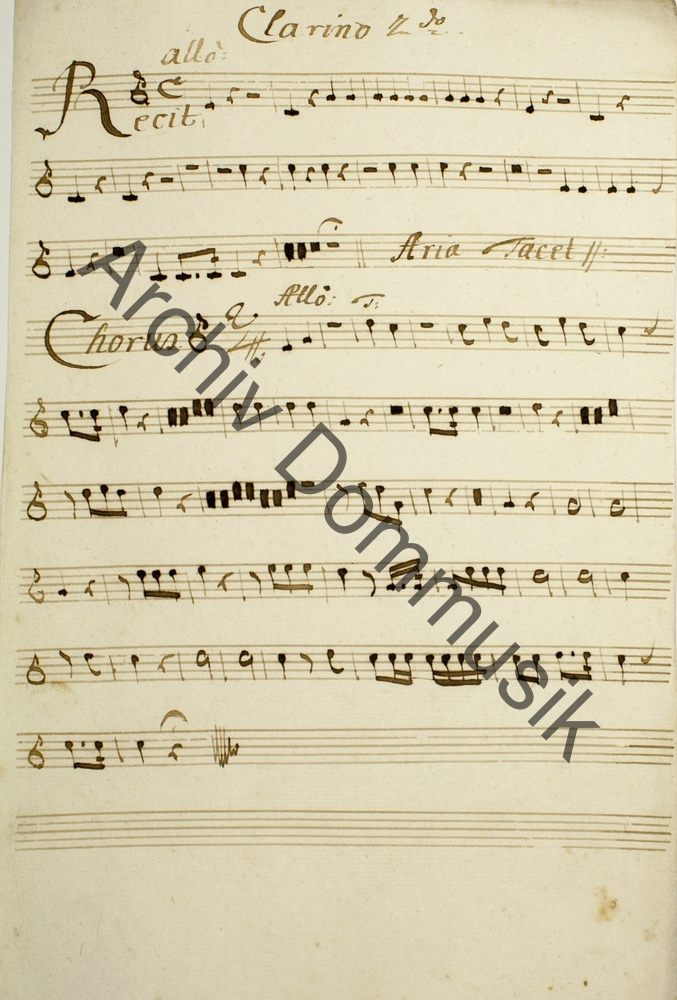 Clarino 2do
allo:
Recit.
Aria Tacet
Allo: T:
Chorus 2/4
Archiv Dommusik